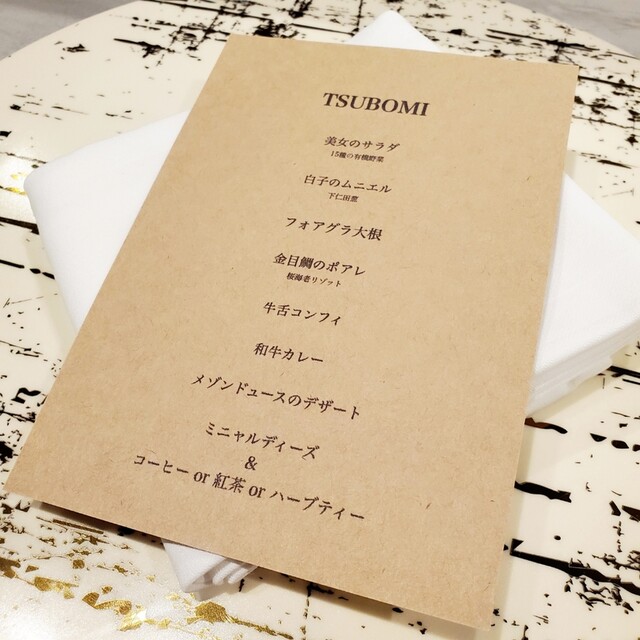 TSUBOMI
美女のサラダ
15種の有機野菜
白子のムニエル
下仁田葱
フォアグラ大根
金目鯛のポアレ
桜海老リゾット
牛舌コンフィ
和牛カレー
メゾンドュースのデザート
ミニャルディーズ
&
コーヒー or 紅茶 or ハーブティー